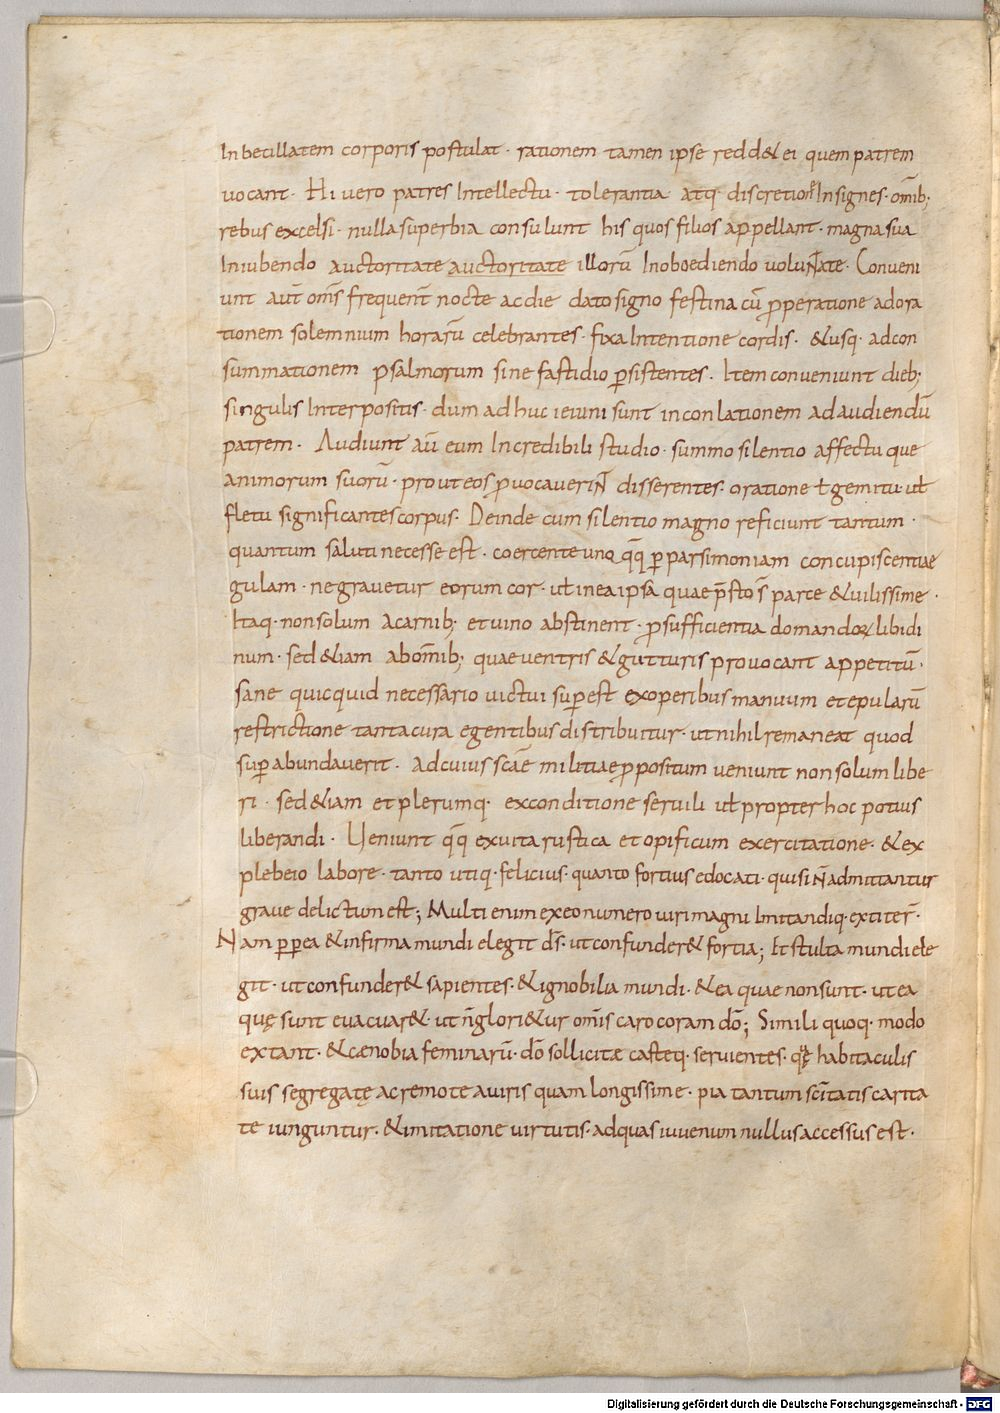 Inbecillatem corporis postulat · rationem tamen ipse redd& ei quem patrem
vocant · Hi vero patres Intellectu · tolerantia atq· discretione Insignes · omīb;
rebus excelsi · nulla superbia consulunt his quos filios appellant · magna sua
In iubendo auctoritate auctoritate illorū In oboediendo voluntate · Conveni
unt aut̄ om̄s frequent̄ nocte ac die dato signo festina cū ꝓperatione adora
tionem solemnium horarū celebrantes · fixa Intentione cordis · &usq· ad con
summationem psalmorum sine fastidio ꝑsistentes · Item conveniunt dieb;
singulis Interpositis · dum adhuc ieiuni sunt in conlationem ad audiendū
patrem · Audiunt aū eum Incredibili studio · summo silentio affectuque
animorum suorū · prout eos ꝓvocaverint disserentes · oratione ł gemitu · uł
fletu significantes corpus · Deinde cum silentio magno reficiunt tantum ·
quantum saluti necesse est · coercente unoq̄q̄ ꝑ parsimoniam concupiscentiae
gulam · ne gravetur eorum cor · uł in ea ipsa quae p̄sto s̄ parce & vilissime ·
Itaq· non solum a carnib; et vino abstinent · ꝓ sufficientia domandoꝝ libidi
num · sed &iam ab om̄ib; quae ventris & gutturis provocant appetitū ·
sane quicquid necessario victui suꝑest ex operibus manuum et epularū
restrictione tanta cura egentibus distribuitur · ut nihil remaneat quod
suꝑabundaverit · Ad cuius sc̄ae militiae ꝓpositum veniunt non solum libe
ri · sed &iam et plerumq· ex conditione servili uł propter hoc potius
liberandi · Veniunt q̄q̄ ex vita rustica et opificum exercitatione · & ex
plebeio labore · tanto utiq· felicius · quanto fortius edocati · qui si n̄ admittantur
grave delictum est; Multi enim ex eo numero viri magni Imitandiq· extiter̄ ·
Nam ꝑꝑea & infirma mundi elegit d̄s · ut confunder& fortia; Et stulta mundi ele
git · ut confunder& sapientes · & ignobilia mundi · & ea quae non sunt · ut ea
quę sunt evacuar& · ut n̄ glori&ur om̄is caro coram dō; Simili quoq· modo
extant · & cænobia feminarū · dō sollicitæ casteq· servientes · quę habitaculis
suis segregatę ac remote a viris quam longissime · pia tantum sc̄itatis carita
te iunguntur · & imitatione virtutis · ad quas iuvenum nullus accessus est ·
Digitalisierung gefördert durch die Deutsche Forschungsgemeinschaft - DFG